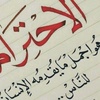 الاحترام
هو أجمل ما يقدمه الإنسان
للناس..